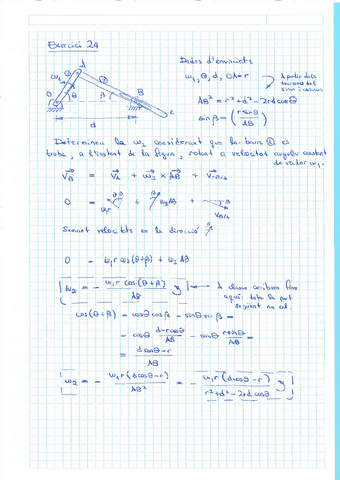 Exercici 24
Dades d'enunciat:
ω₁, θ, d, OA=r
A partir dels
teorema del
sinus i cosinus
AB² = r²+d²-2rd cosθ
sinβ = (r sinθ / AB)
A
ω₁
O
θ
β
B
C
d
Determineu la ω₂ considerant que la barra ① es
troba, a l'instant de la figura, rotant a velocitat angular constant
de valor ω₁.
V_B = V_A + ω₂ × AB + V_rB/2
0 = ω₁r + ω₂AB + V_B/2
Sumant velocitats en la direcció
0 = ω₁r cos(θ+β) + ω₂ AB
ω₂ = - ω₁r cos(θ+β) / AB
A classe arribem fins
aquí, tota la part
següent no cal.
cos(θ+β) = cosθ cosβ - sinθ sinβ =
= cosθ (d-r cosθ)/AB - sinθ (r sinθ)/AB =
= (d cosθ - r)/AB
ω₂ = - ω₁r(d cosθ - r)/AB² = - ω₁r(d cosθ - r)/(r²+d²-2rd cosθ)